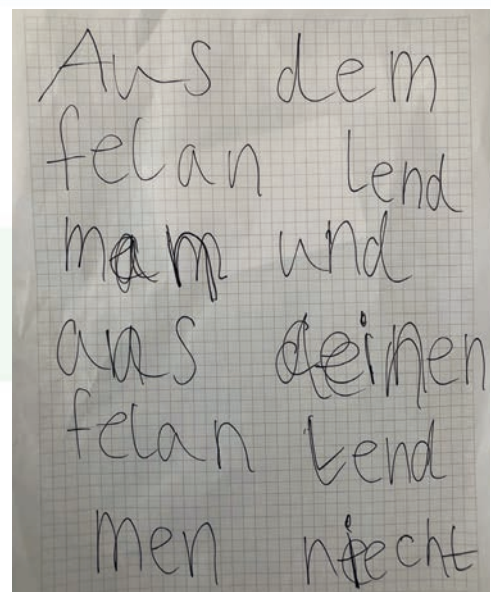 Aus dem
felan lend
mam und
aus deinen
felan lend
men niecht